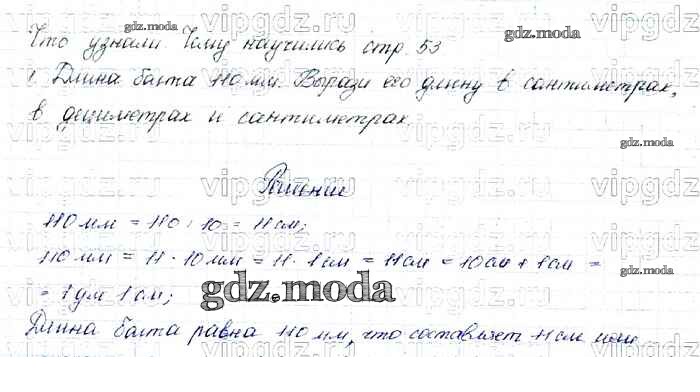 Что узнали. Чему научились стр. 53
1 Длина болта 110 мм. Вырази его длину в сантиметрах,
в дециметрах и сантиметрах.
Решение
110 мм = 110 : 10 = 11 см;
110 мм = 11 · 10 мм = 11 · 1 см = 11 см = 10 см + 1 см =
= 1 дм 1 см;
Длина болта равна 110 мм, что составляет 11 см или
gdz.moda
gdz.moda
gdz.moda
gdz.moda
vipgdz vipgdz vipgdz vipgdz